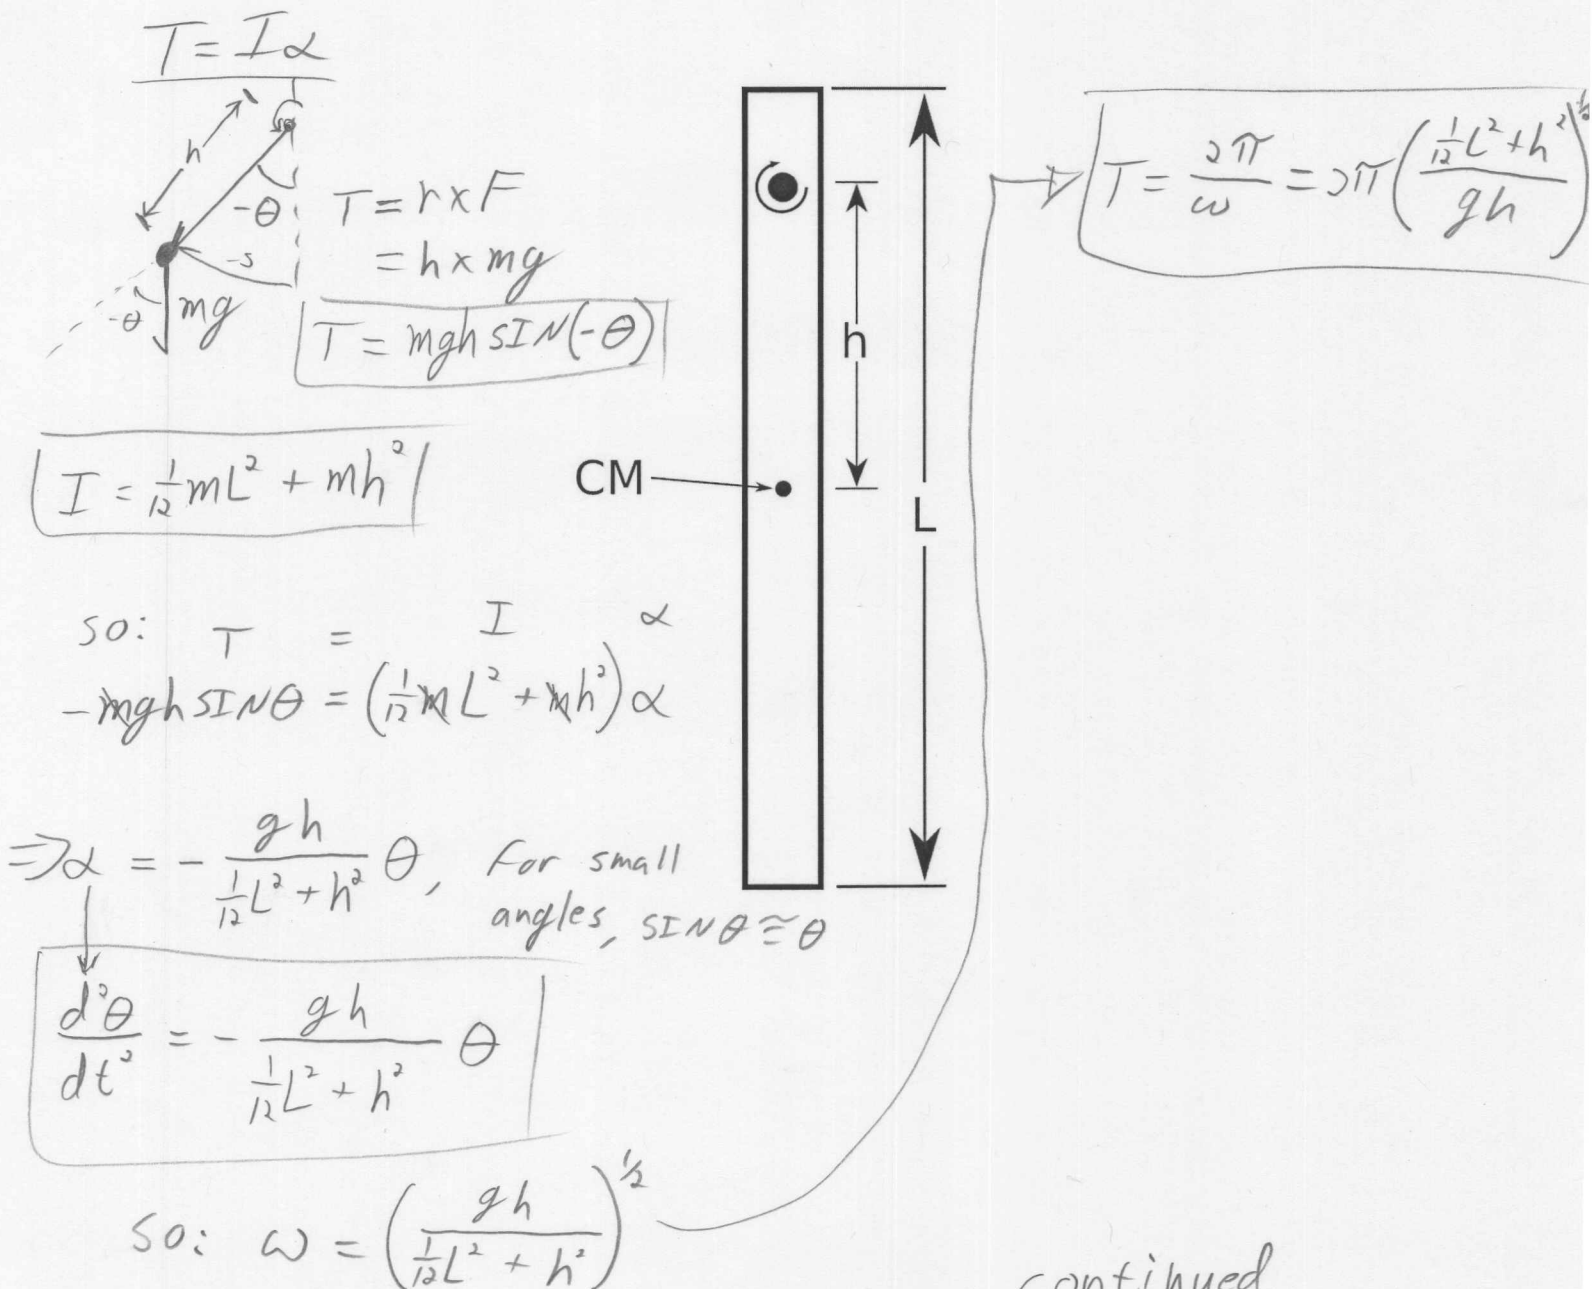 T = Iα
h
-θ
-s
-θ
mg
T = r x F
= h x mg
T = mgh SIN(-θ)
I = 1/12 mL² + mh²
so: T = I α
-mgh SINθ = (1/12 mL² + mh²) α
⇒ α = - gh / (1/12 L² + h²) θ, for small
angles, SINθ ≅ θ
d²θ/dt² = - gh / (1/12 L² + h²) θ
so: ω = (gh / (1/12 L² + h²))^½
CM
h
L
T = 2π/ω = 2π ((1/12 L² + h²) / gh)^½
continued